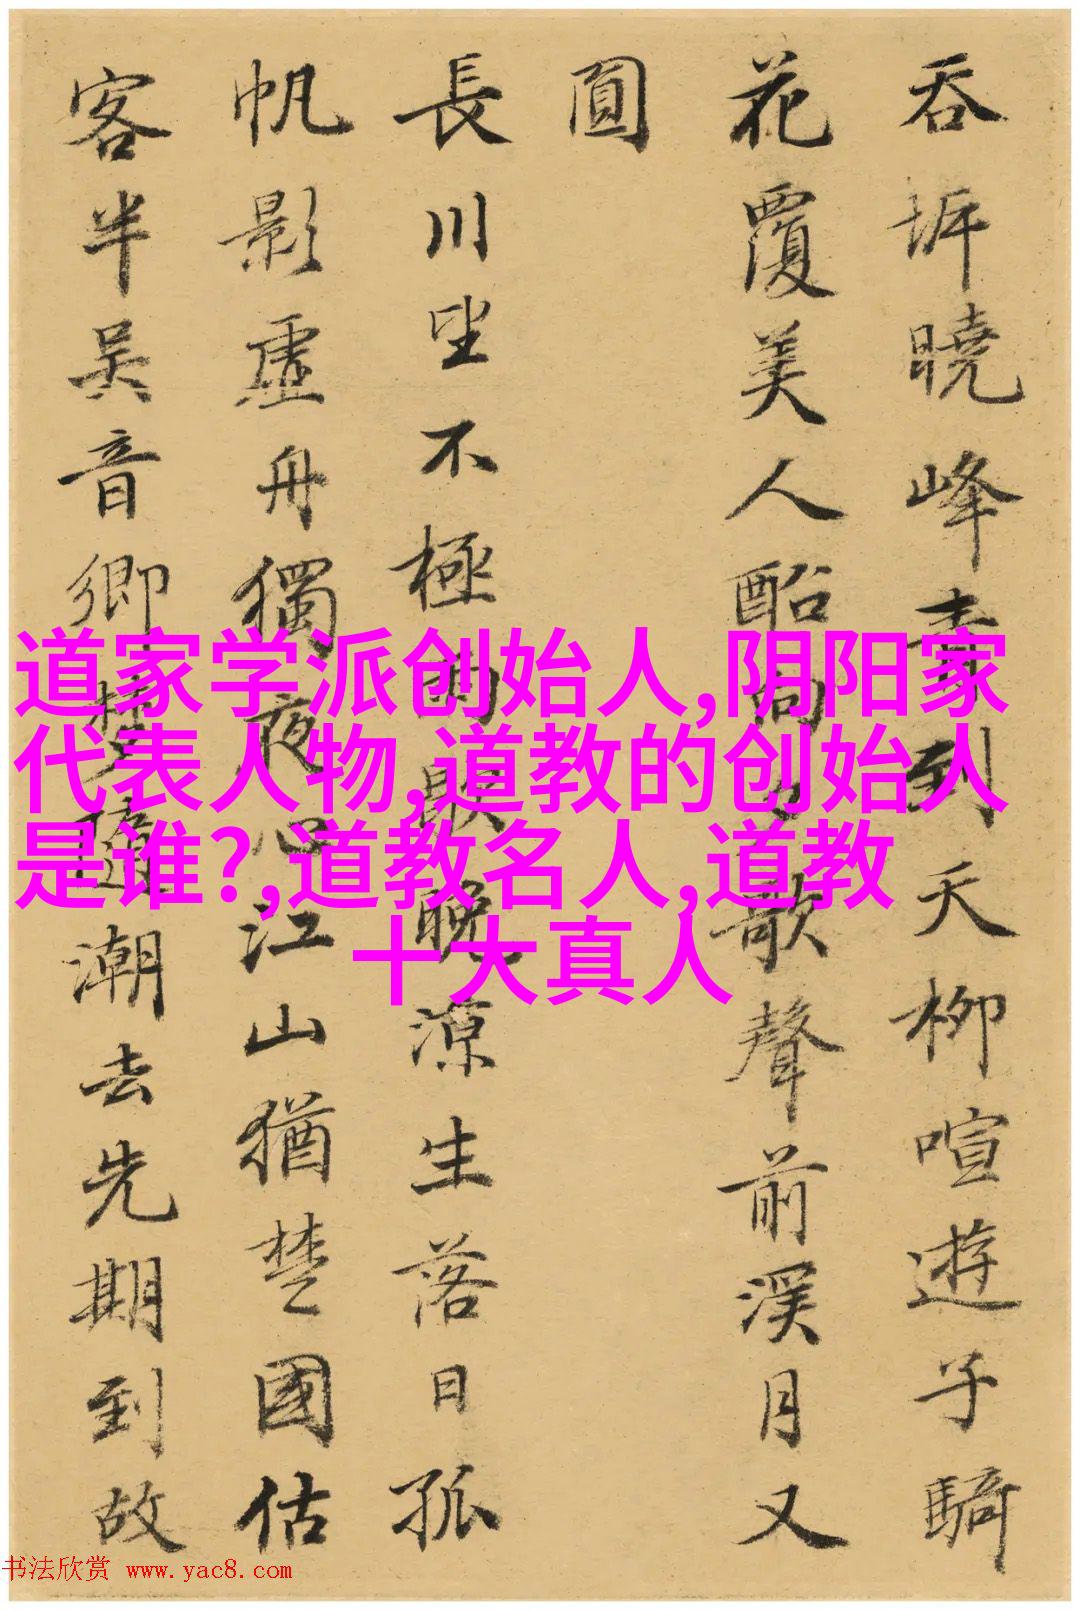 吞坼曉峰青到天柳喧遊子騎
花覆美人船向歌聲前溪月又
圓
長川望不極雨歇晚涼生落日孤
帆影虛舟獨夜心江山猶楚國估
客半吳音鄉夢隨潮去先期到故
道家学派创始人,阴阳家
代表人物,道教的创始人
是谁?,道教名人,道教
十大真人
书法欣赏 www.yac8.com